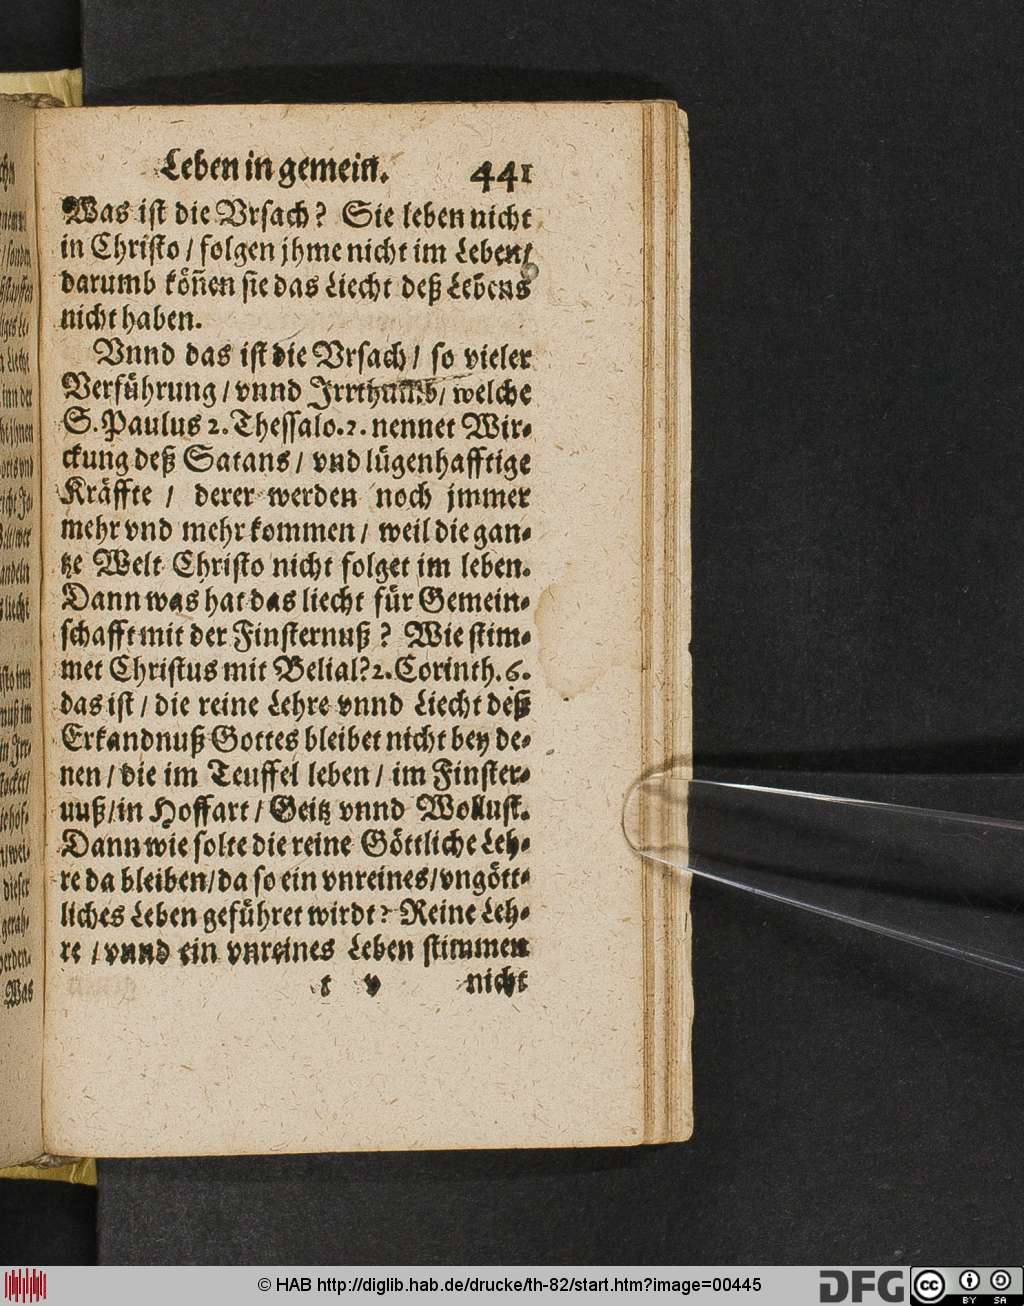 Leben in gemein. 441
Was ist die Vrsach? Sie leben nicht
in Christo / folgen jhme nicht im Leben /
darumb köñen sie das Liecht deß Lebens
nicht haben.
Vnnd das ist die Vrsach / so vieler
Verführung / vnnd Irrthumb / welche
S. Paulus 2. Thessalo. 2. nennet Wir-
ckung deß Satans / vnd lügenhafftige
Kräffte / derer werden noch jmmer
mehr vnd mehr kommen / weil die gan-
tze Welt Christo nicht folget im leben.
Dann was hat das liecht für Gemein-
schafft mit der Finsternuß? Wie stim-
met Christus mit Belial? 2. Corinth. 6.
das ist / die reine Lehre vnnd Liecht deß
Erkandnuß Gottes bleibet nicht bey de-
nen / die im Teuffel leben / im Finster-
nuß / in Hoffart / Geitz vnnd Wollust.
Dann wie solte die reine Göttliche Leh-
re da bleiben / da so ein vnreines / vngött-
liches Leben geführet wirdt? Reine Leh-
re / vnnd ein vnreines Leben stimmen
t v nicht
Was
© HAB http://diglib.hab.de/drucke/th-82/start.htm?image=00445
DFG
cc BY SA